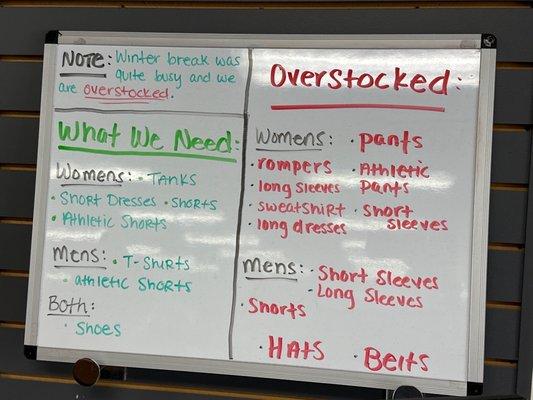 NOTE: Winter break was
quite busy and we
are overstocked.
What We Need:
Womens: • TANKS
• Short Dresses • Shorts
• Athletic Shorts
Mens: • T-Shirts
• athletic Shorts
Both:
• Shoes
Overstocked:
Womens: • pants
• rompers • Athletic
• long sleeves pants
• sweatshirt • Short
• long dresses sleeves
Mens: • Short Sleeves
• Long Sleeves
• Shorts
• HAts • Belts